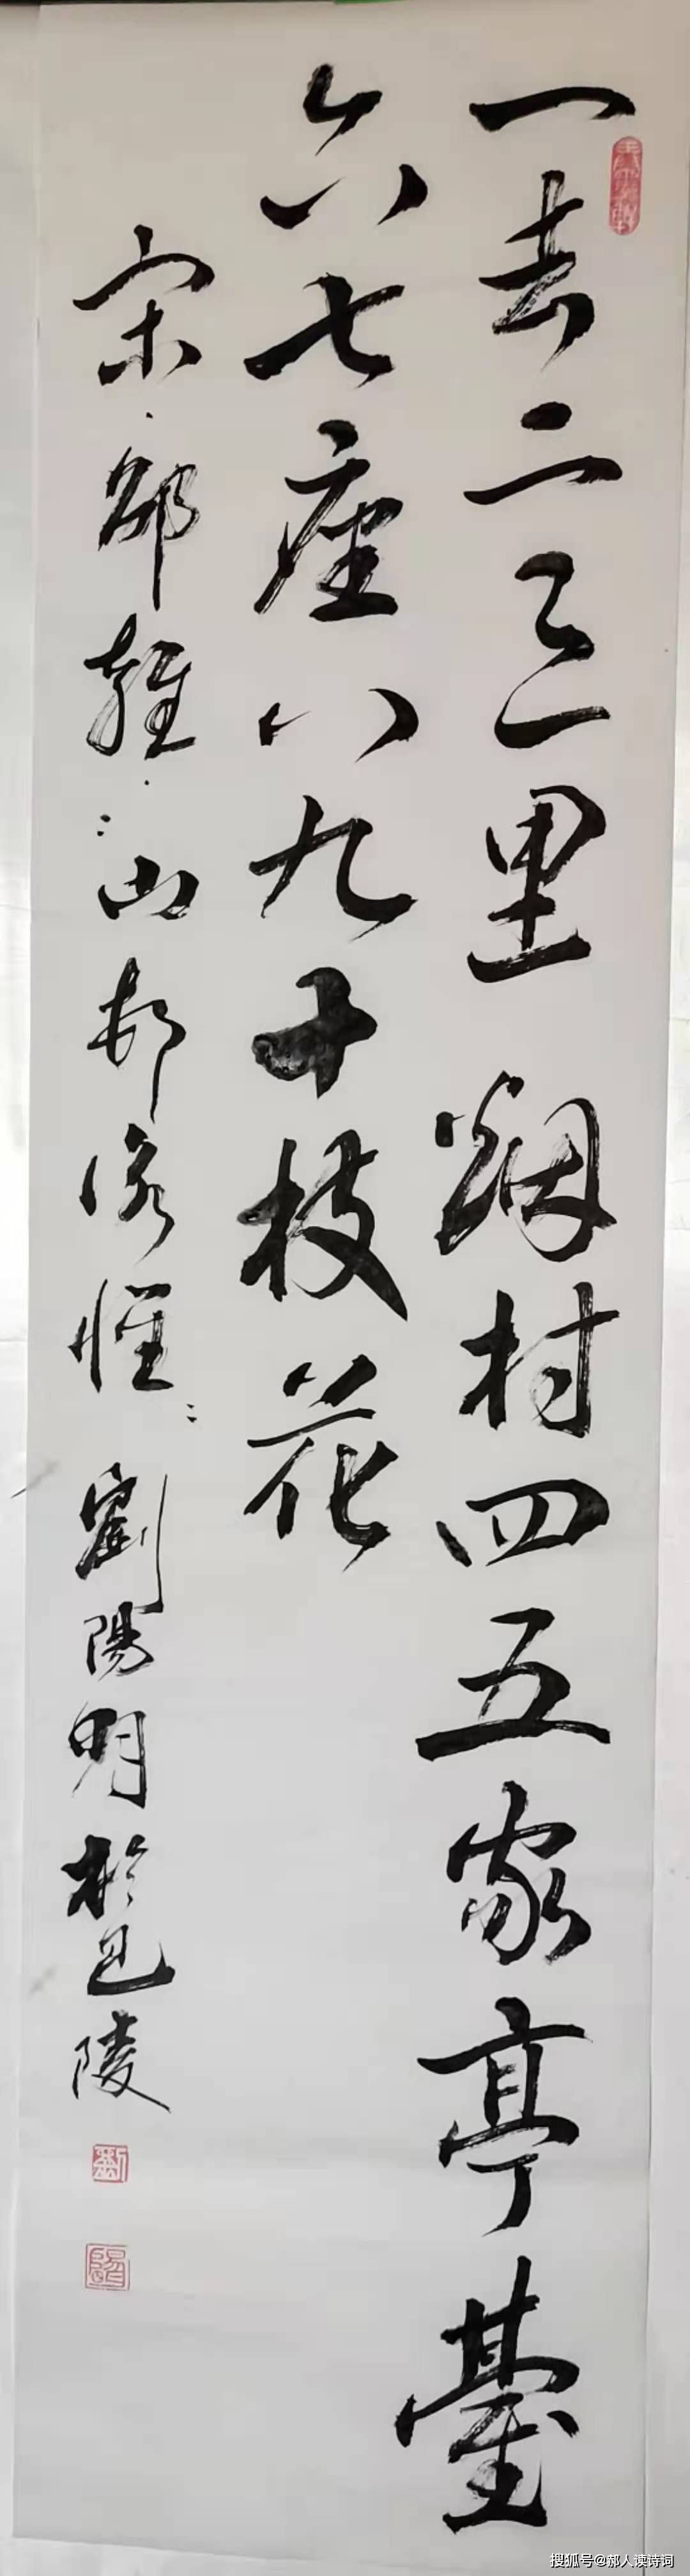 一去二三里烟村四五家亭臺
六七座八九十枝花
宋·邵雍·山村咏怀 劉陽明於巴陵
搜狐号@郝人读诗词